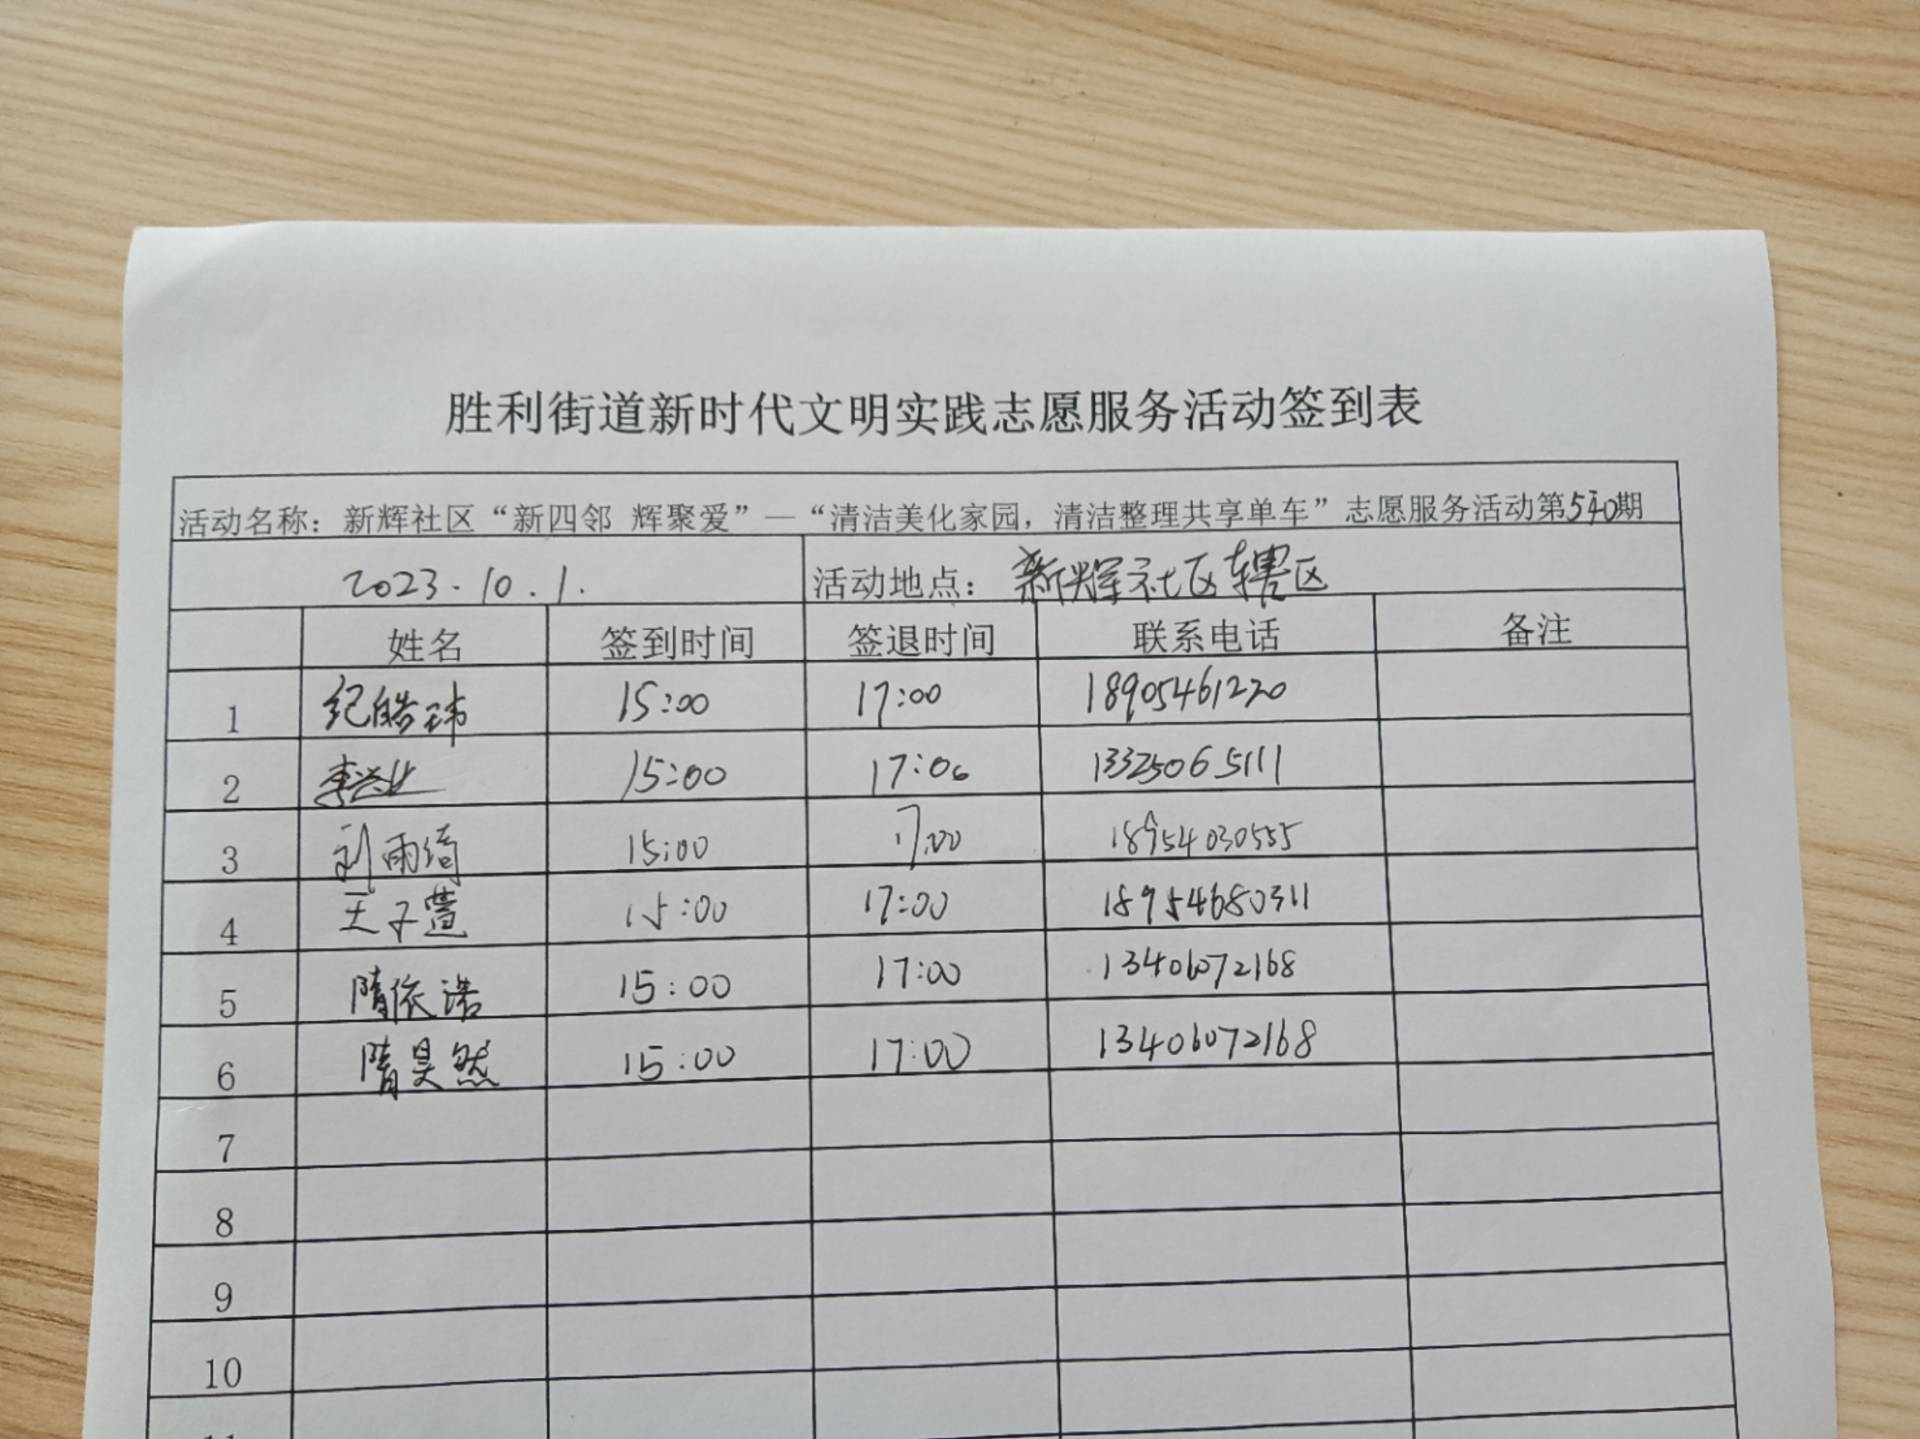 胜利街道新时代文明实践志愿服务活动签到表
活动名称：新辉社区“新四邻 辉聚爱”—“清洁美化家园，清洁整理共享单车”志愿服务活动第540期
2023.10.1. 活动地点：新辉社区辖区
姓名 签到时间 签退时间 联系电话 备注
1 纪皓玮 15:00 17:00 18905461220
2 李兴业 15:00 17:00 13325065111
3 刘雨绮 15:00 17:00 18954030555
4 王子萱 15:00 17:00 18954680311
5 隋依诺 15:00 17:00 13406072168
6 隋昊然 15:00 17:00 13406072168
7
8
9
10